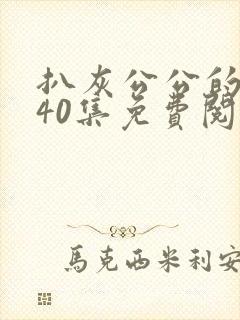 扒灰公公的
40集免費閱
馬克西米利安